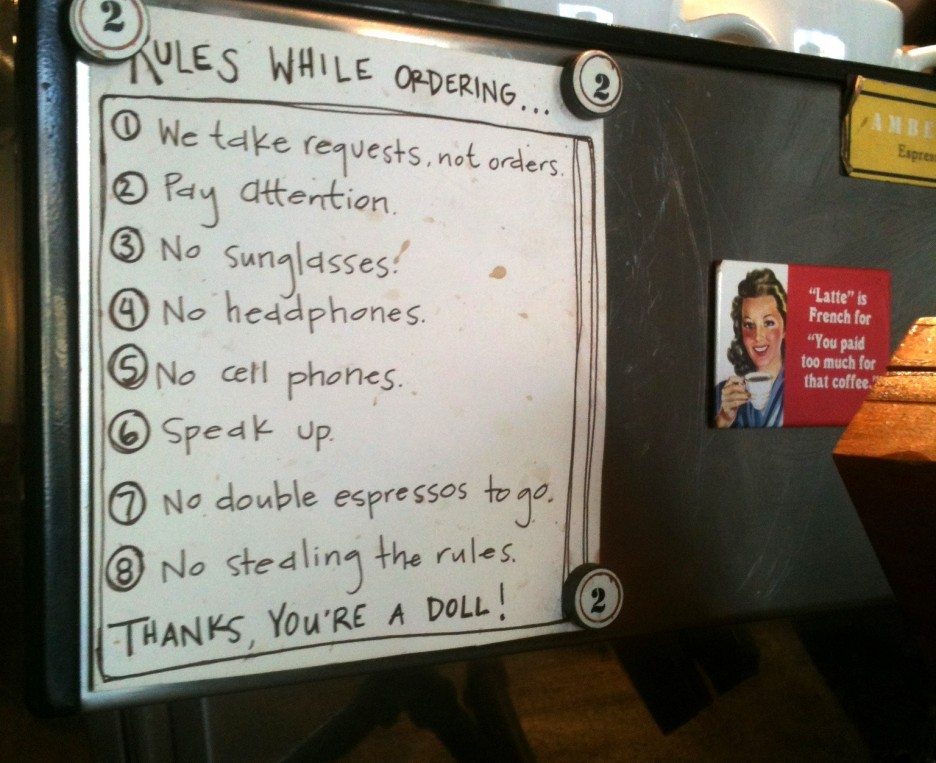 2
RULES WHILE ORDERING...
2
1 We take requests, not orders.
2 Pay attention.
3 No sunglasses!
4 No headphones.
5 No cell phones.
6 Speak up.
7 No double espressos to go.
8 No stealing the rules.
THANKS, YOU'RE A DOLL!
2
"Latte" is
French for
"You paid
too much for
that coffee."